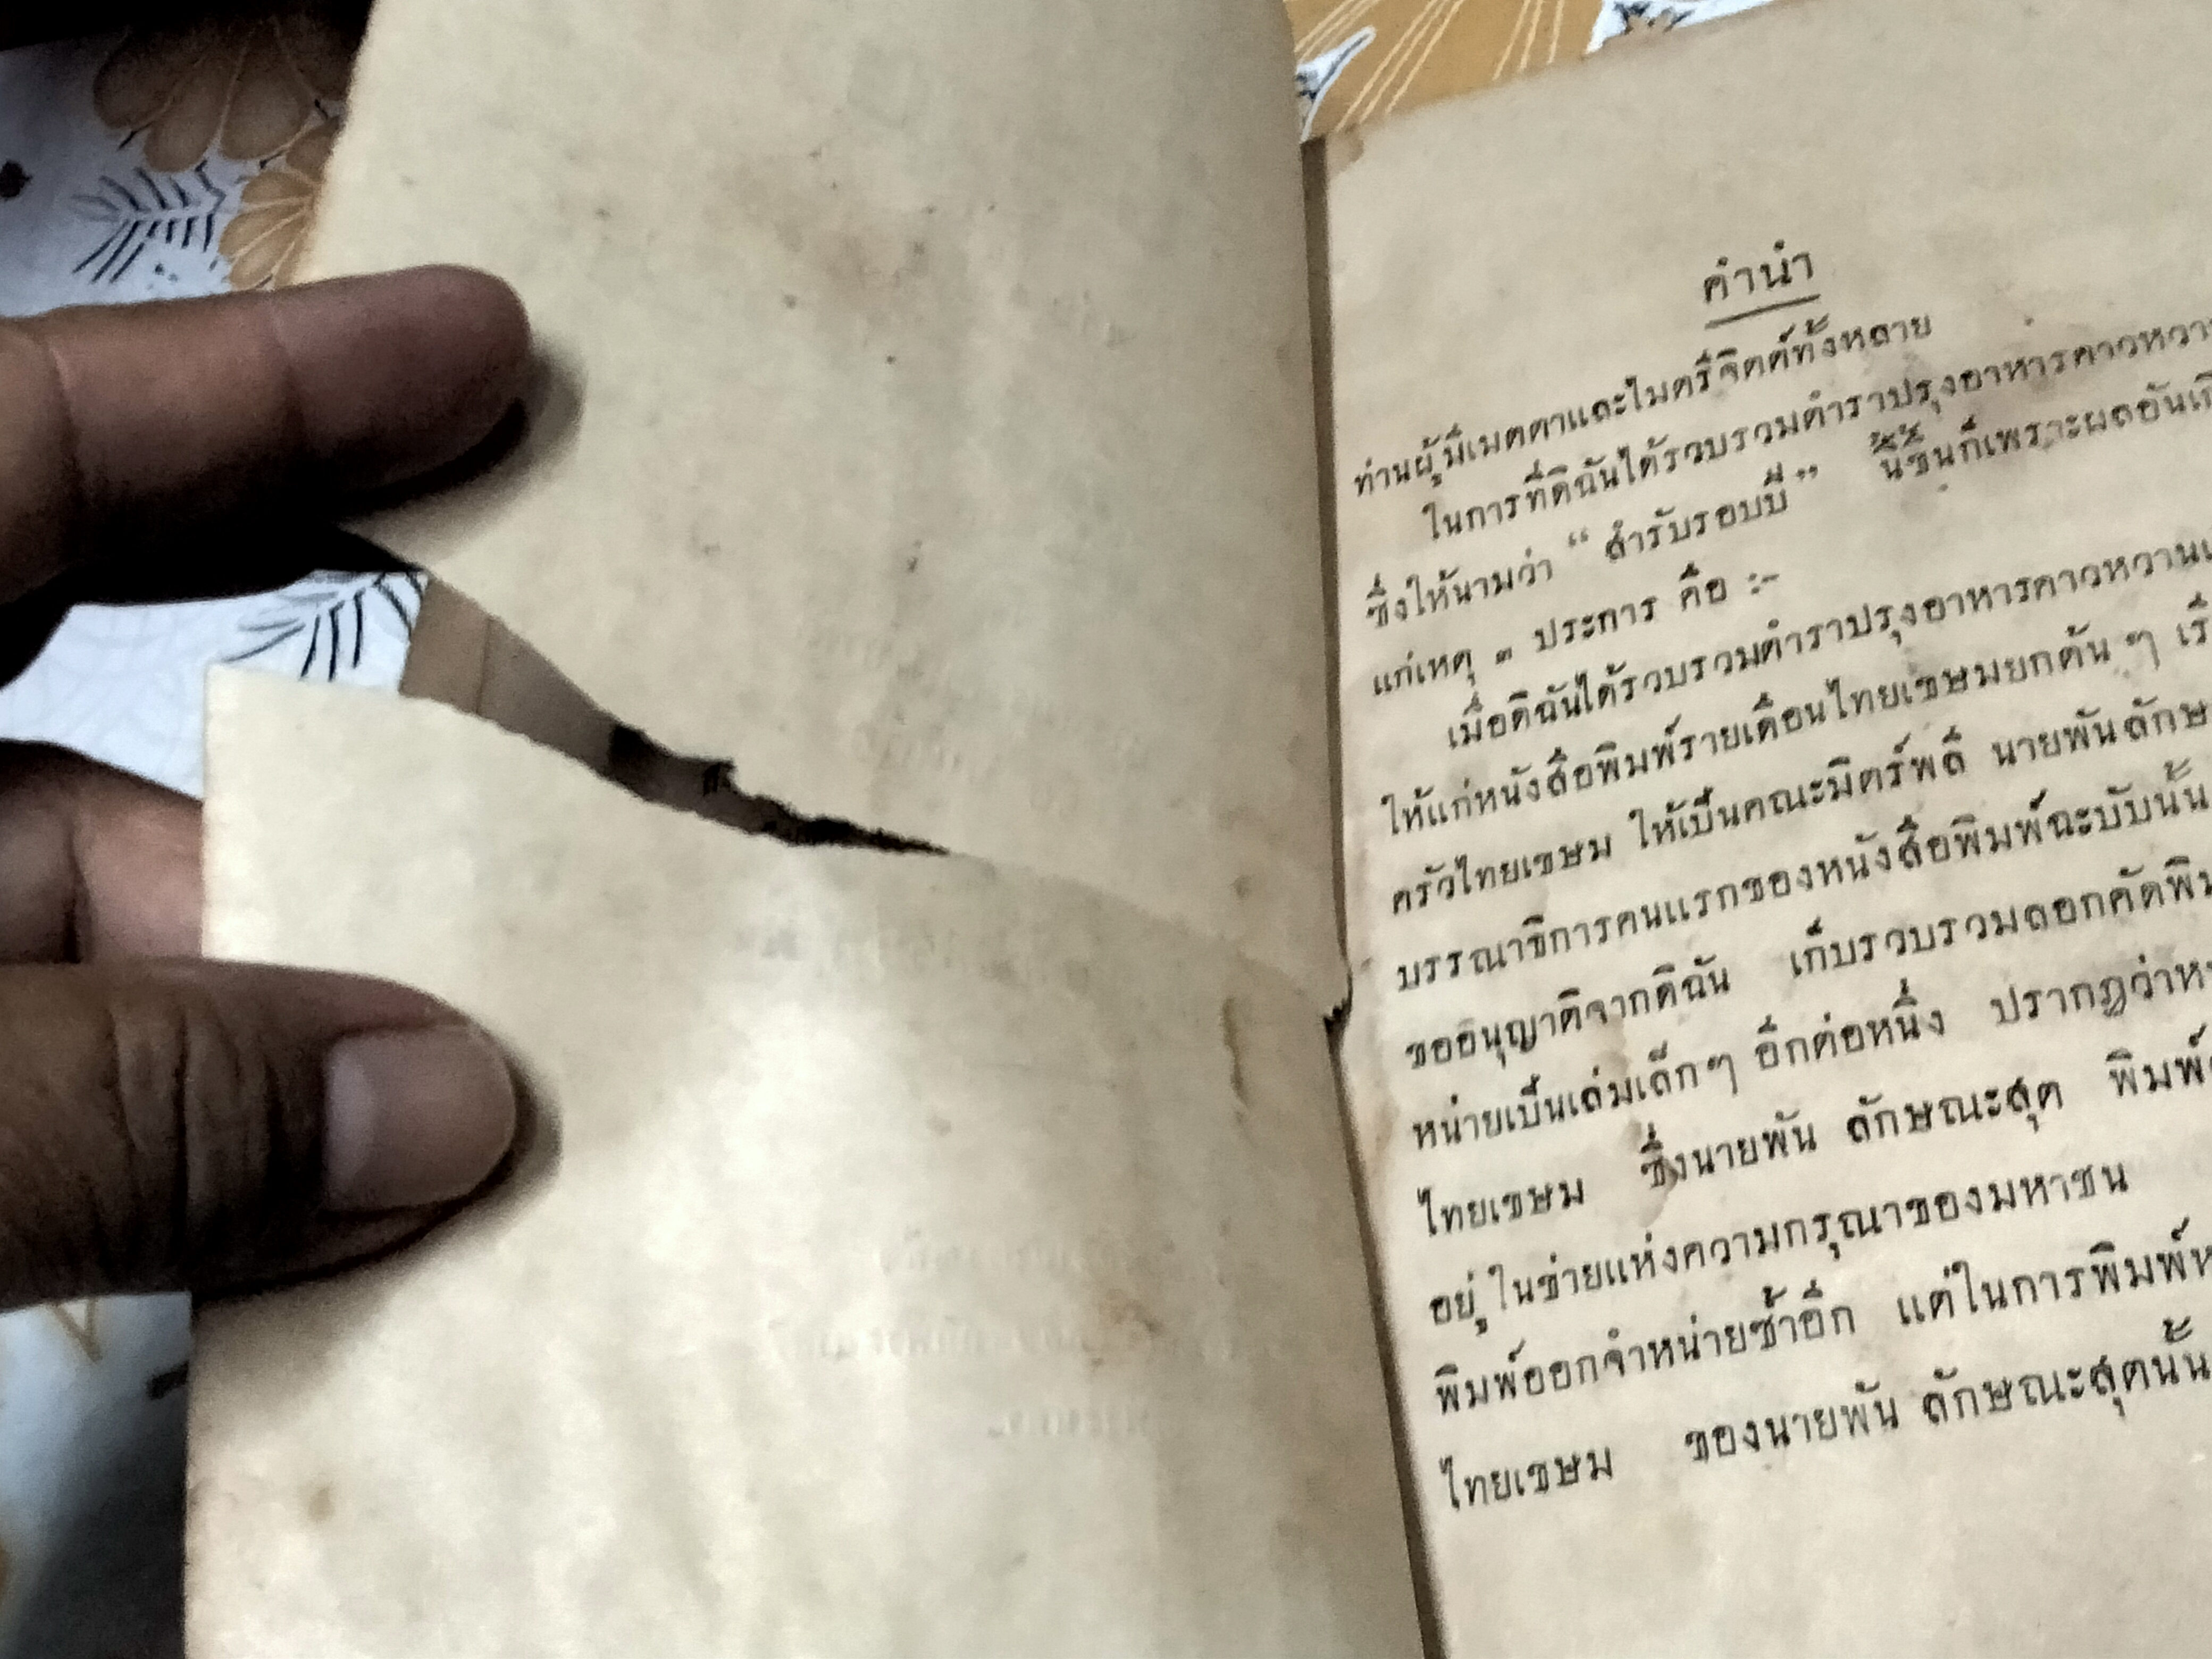 คำนำ
ท่านผู้มีเมตตาและไมตรีจิตต์ทั้งหลาย
ในการที่ดิฉันได้รวบรวมตำราปรุงอาหารคาวหวาน
ซึ่งให้นามว่า “ สำรับรอบปี ” นี้ขึ้นก็เพราะผลอันเกิ
แก่เหตุ ๓ ประการ คือ :-
เมื่อดิฉันได้รวบรวมตำราปรุงอาหารคาวหวาน
ให้แก่หนังสือพิมพ์รายเดือนไทยเขษมยกต้น ๆ เรื
ครัวไทยเขษม ให้เป็นคณะมิตร์พลี นายพันลักษ
บรรณาธิการคนแรกของหนังสือพิมพ์ฉะบับนั้น
ขออนุญาติจากดิฉัน เก็บรวบรวมลอกคัดพิม
หน่ายเป็นเล่มเล็กๆ อีกต่อหนึ่ง ปรากฏว่าห
ไทยเขษม ซึ่งนายพัน ลักษณะสุต พิมพ์
อยู่ในข่ายแห่งความกรุณาของมหาชน
พิมพ์ออกจำหน่ายซ้ำอีก แต่ในการพิมพ์ห
ไทยเขษม ของนายพัน ลักษณะสุตนั้น